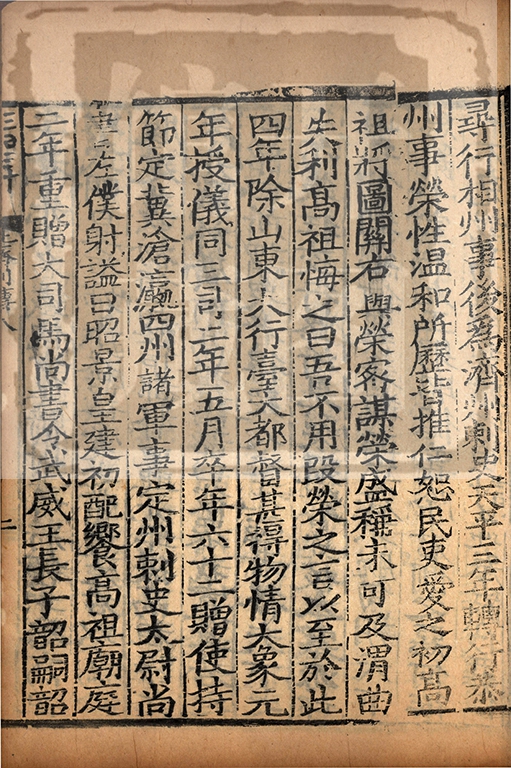 尋行相州事後爲齊州刺史天平三年轉行泰
州事榮性溫和所歷皆推仁恕民吏愛之初高
祖將圖關右與榮客謀榮盛稱未可及渭曲
失利高祖悔之曰吾不用段榮之言以至於此
四年除山東大行臺大都督甚得物情大象元
年授儀同三司二年五月卒年六十二贈使持
節定冀滄瀛四州諸軍事定州刺史太尉尚
書左僕射謚曰昭景皇建初配饗高祖廟庭
二年重贈大司馬尚書令武威王長子韶嗣韶